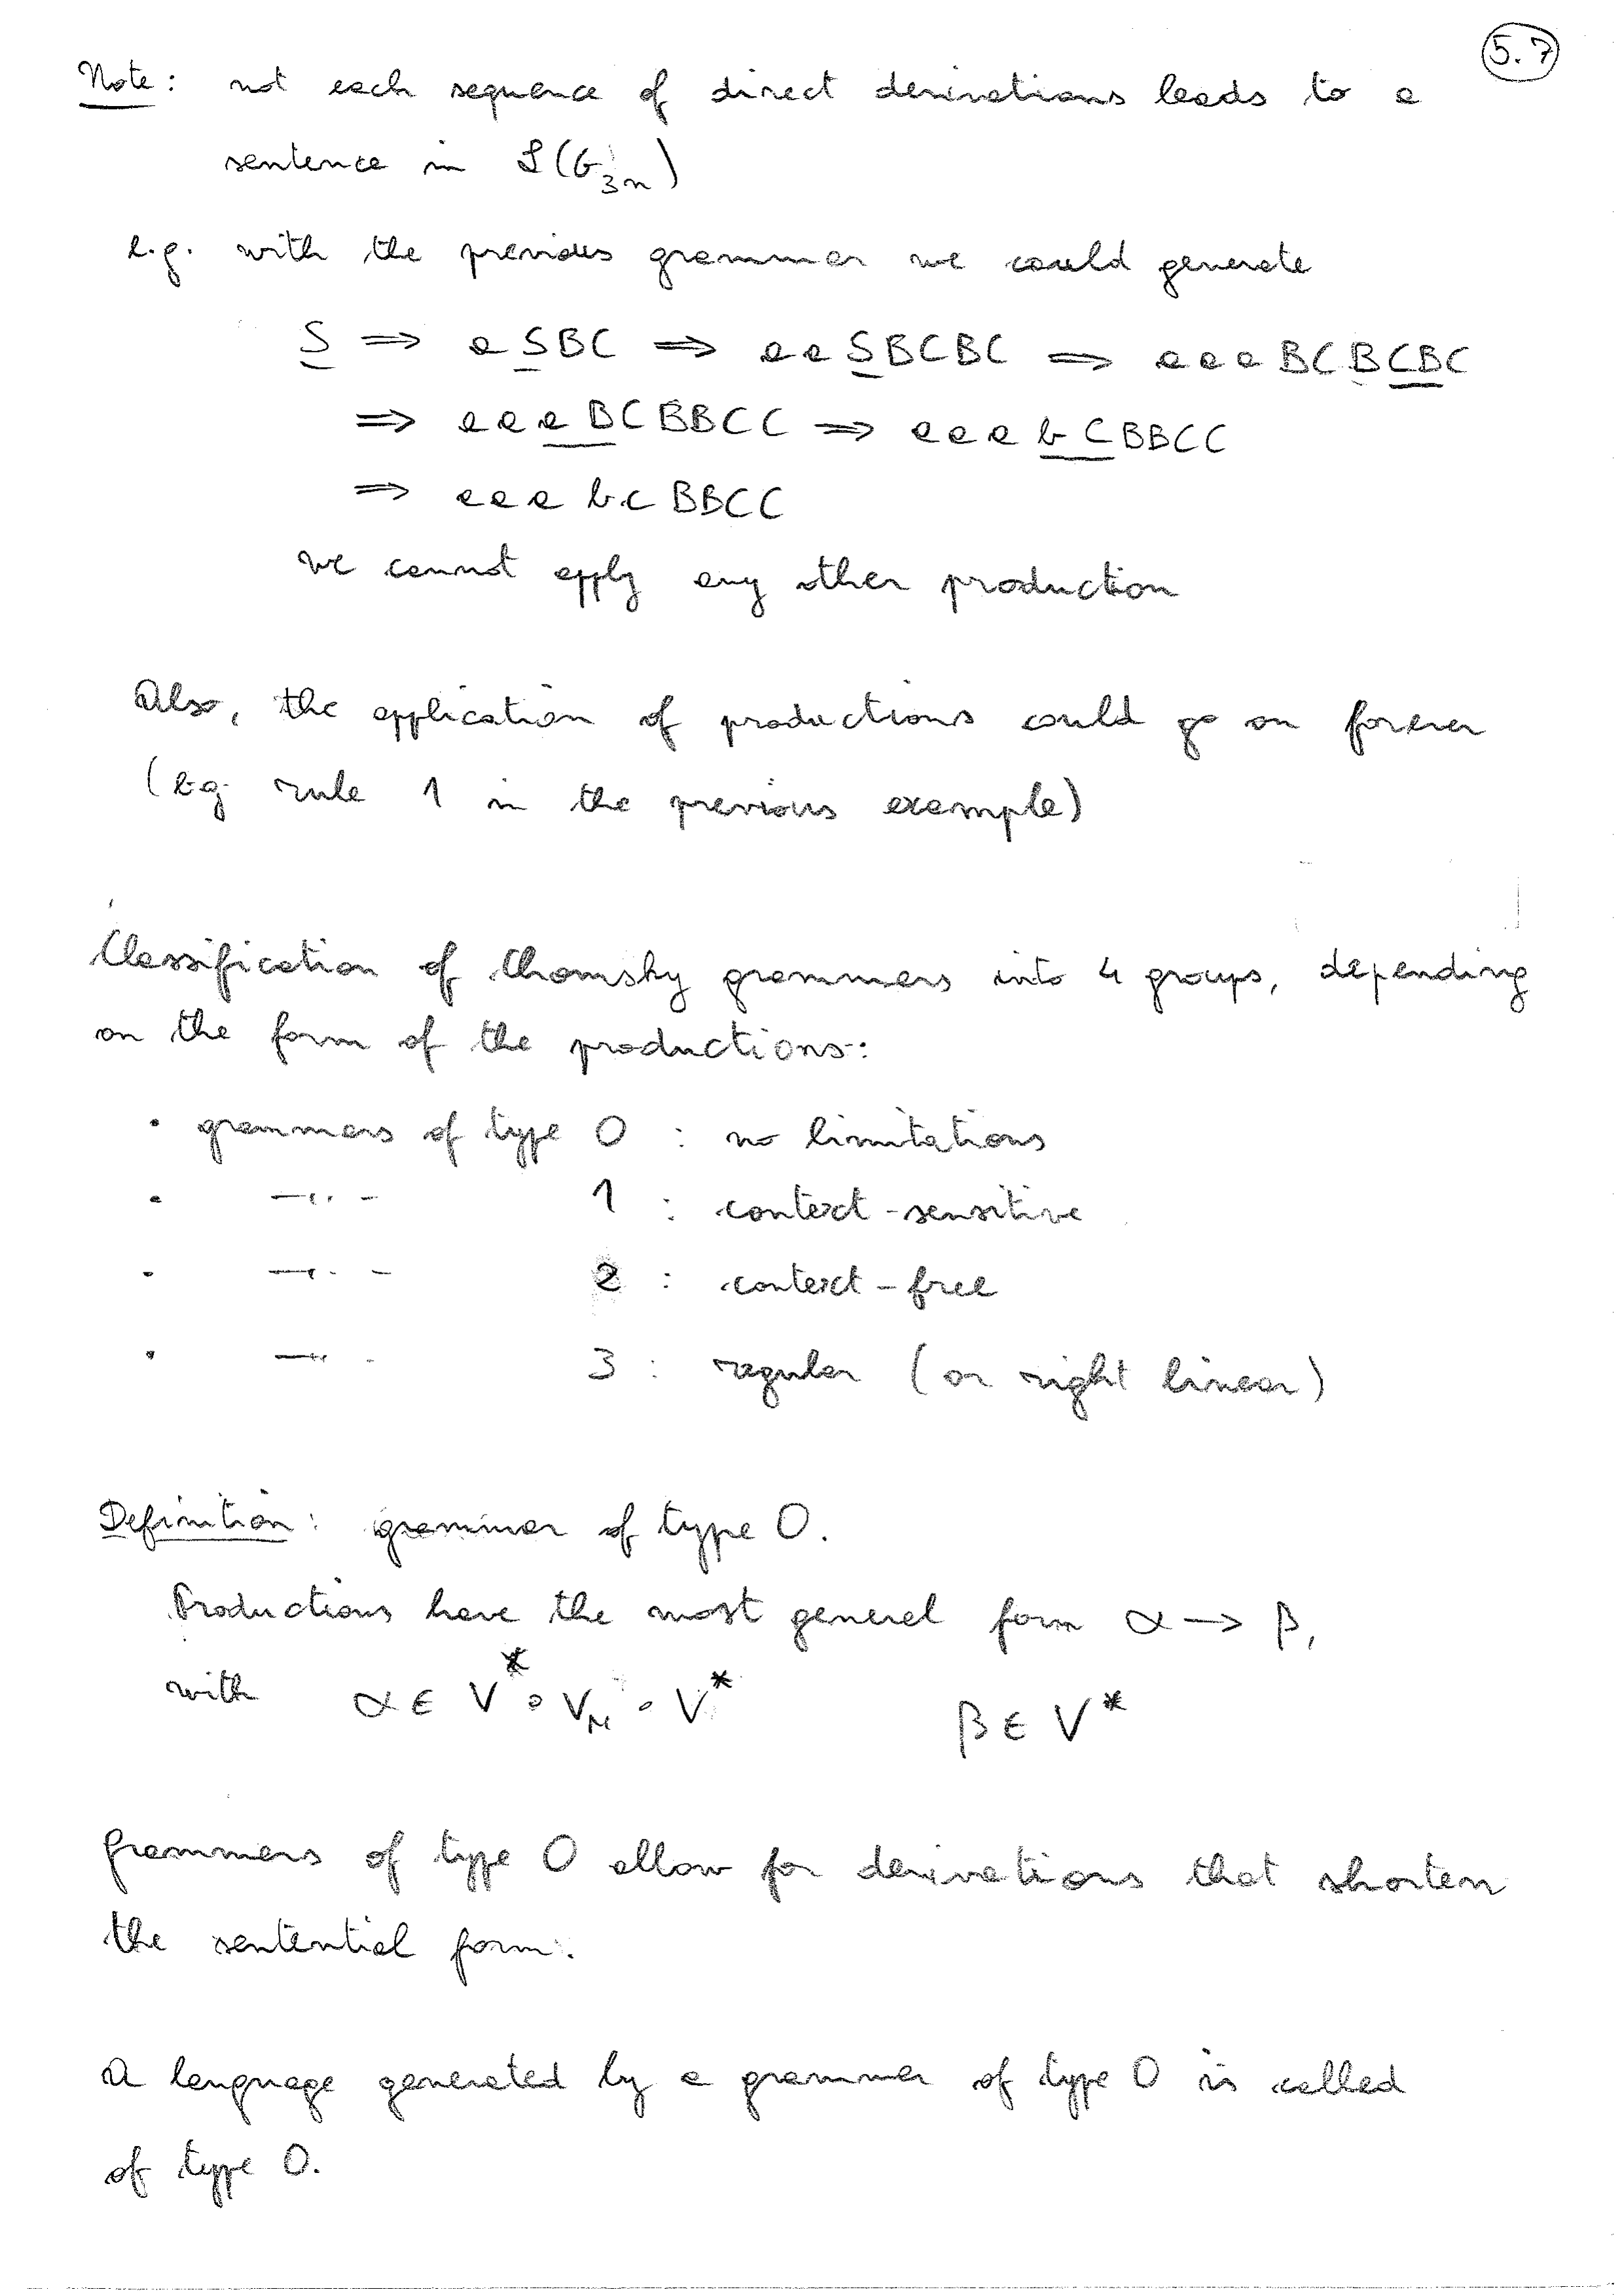 5.7
Note: not each sequence of direct derivations leads to a
sentence in L(G'3n)
e.g. with the previous grammar we could generate
S ⇒ aSBC ⇒ aaSBCBC ⇒ aaaBCBCBC
⇒ aaaBCBBCC ⇒ aaabCBBCC
⇒ aaabcBBCC
we cannot apply any other production
Also, the application of productions could go on forever
(e.g. rule 1 in the previous example)
Classification of Chomsky grammars into 4 groups, depending
on the form of the productions:
• grammars of type 0 : no limitations
• —〃— 1 : context-sensitive
• —〃— 2 : context-free
• —〃— 3 : regular (or right linear)
Definition: grammar of type 0.
Productions have the most general form α → β,
with α ∈ V* ∘ V_N ∘ V* β ∈ V*
Grammars of type 0 allow for derivations that shorten
the sentential form.
A language generated by a grammar of type 0 is called
of type 0.